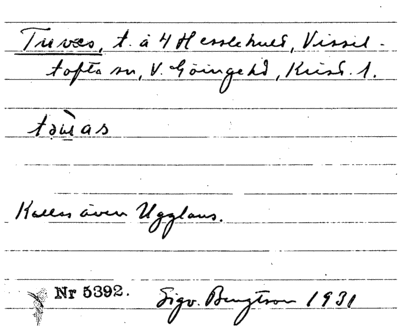 Tuvas, t. å 4 Hesslehult, Vissel-
tofta sn, V. Göingehd, Krist. l.
Kallas även Ugglans.
Nr 5392.
Sigv. Bengtson 1931